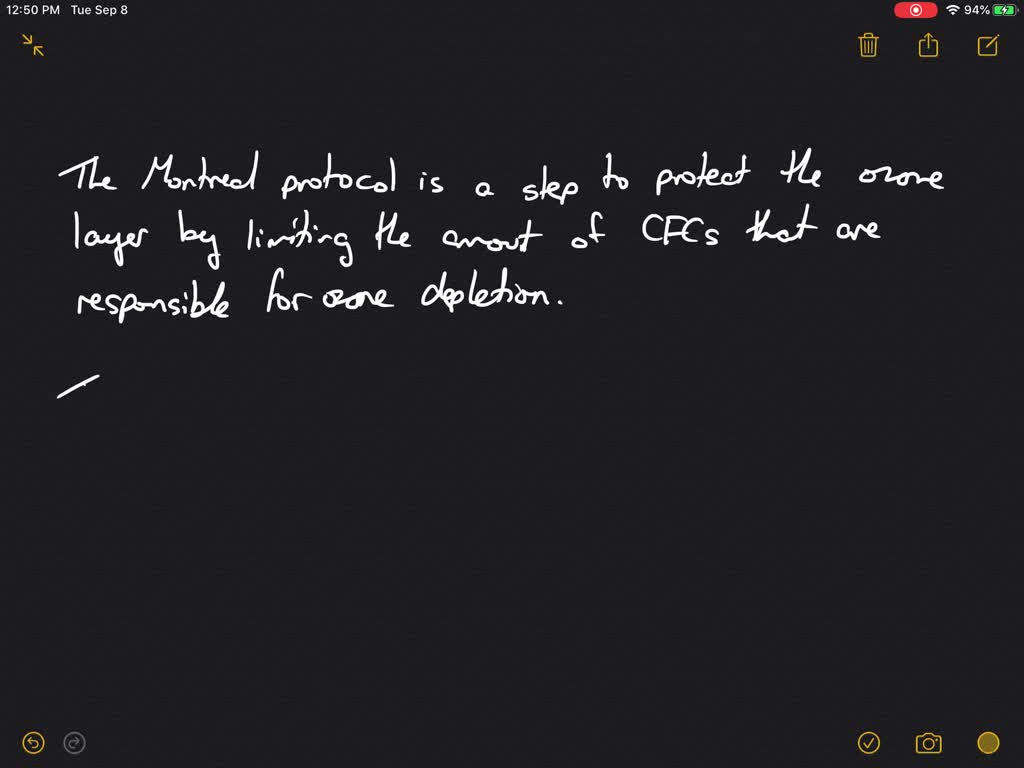 12:50 PM Tue Sep 8 94%
The Montreal protocol is a step to protect the ozone
layer by limiting the amout of CFCs that are
responsible for ozone depletion.